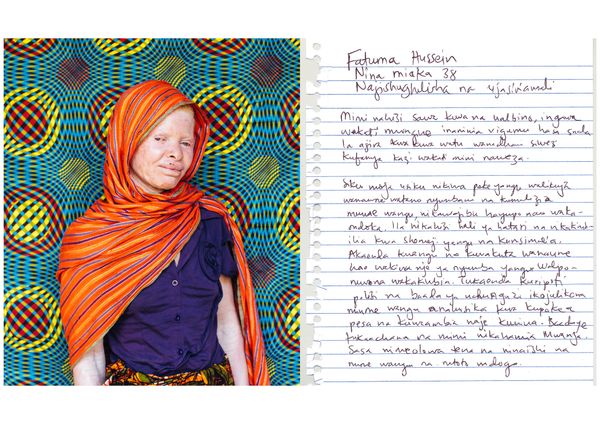 Fatuma Hussein
Nina miaka 38
Najishughulisha na ujasiriamali
Mimi nahisi sawa kuwa na ualbino, ingawa
wakati mwingine inaniwia vigumu hasa suala
la ajira kwa kuwa watu wanadhani siwezi
kufanya kazi wakati mimi naweza.
Siku moja usiku nikiwa peke yangu, walikuja
wanaume watano nyumbani na kumuulizia
mume wangu, nikawajibu hayupo nao waka-
ondoka. Ila nikahisi hali ya hatari na
kwa shemeji yangu na kunsimulia.
Akaenda kwangu na kuwakuta wanaume
hao wakiwa nje ya nyumba yangu. Walipo-
muona wakakimbia. Tukaenda kuripoti
polisi na baada ya uchunguzi ikajulikana
mume wangu kwa kupokea
pesa na kuuwa. Baadaye
tukaachana na mimi nikahamia Mwanza.
Sasa nimeolewa tena na ninaishi na
mume wangu na mtoto mdogo.